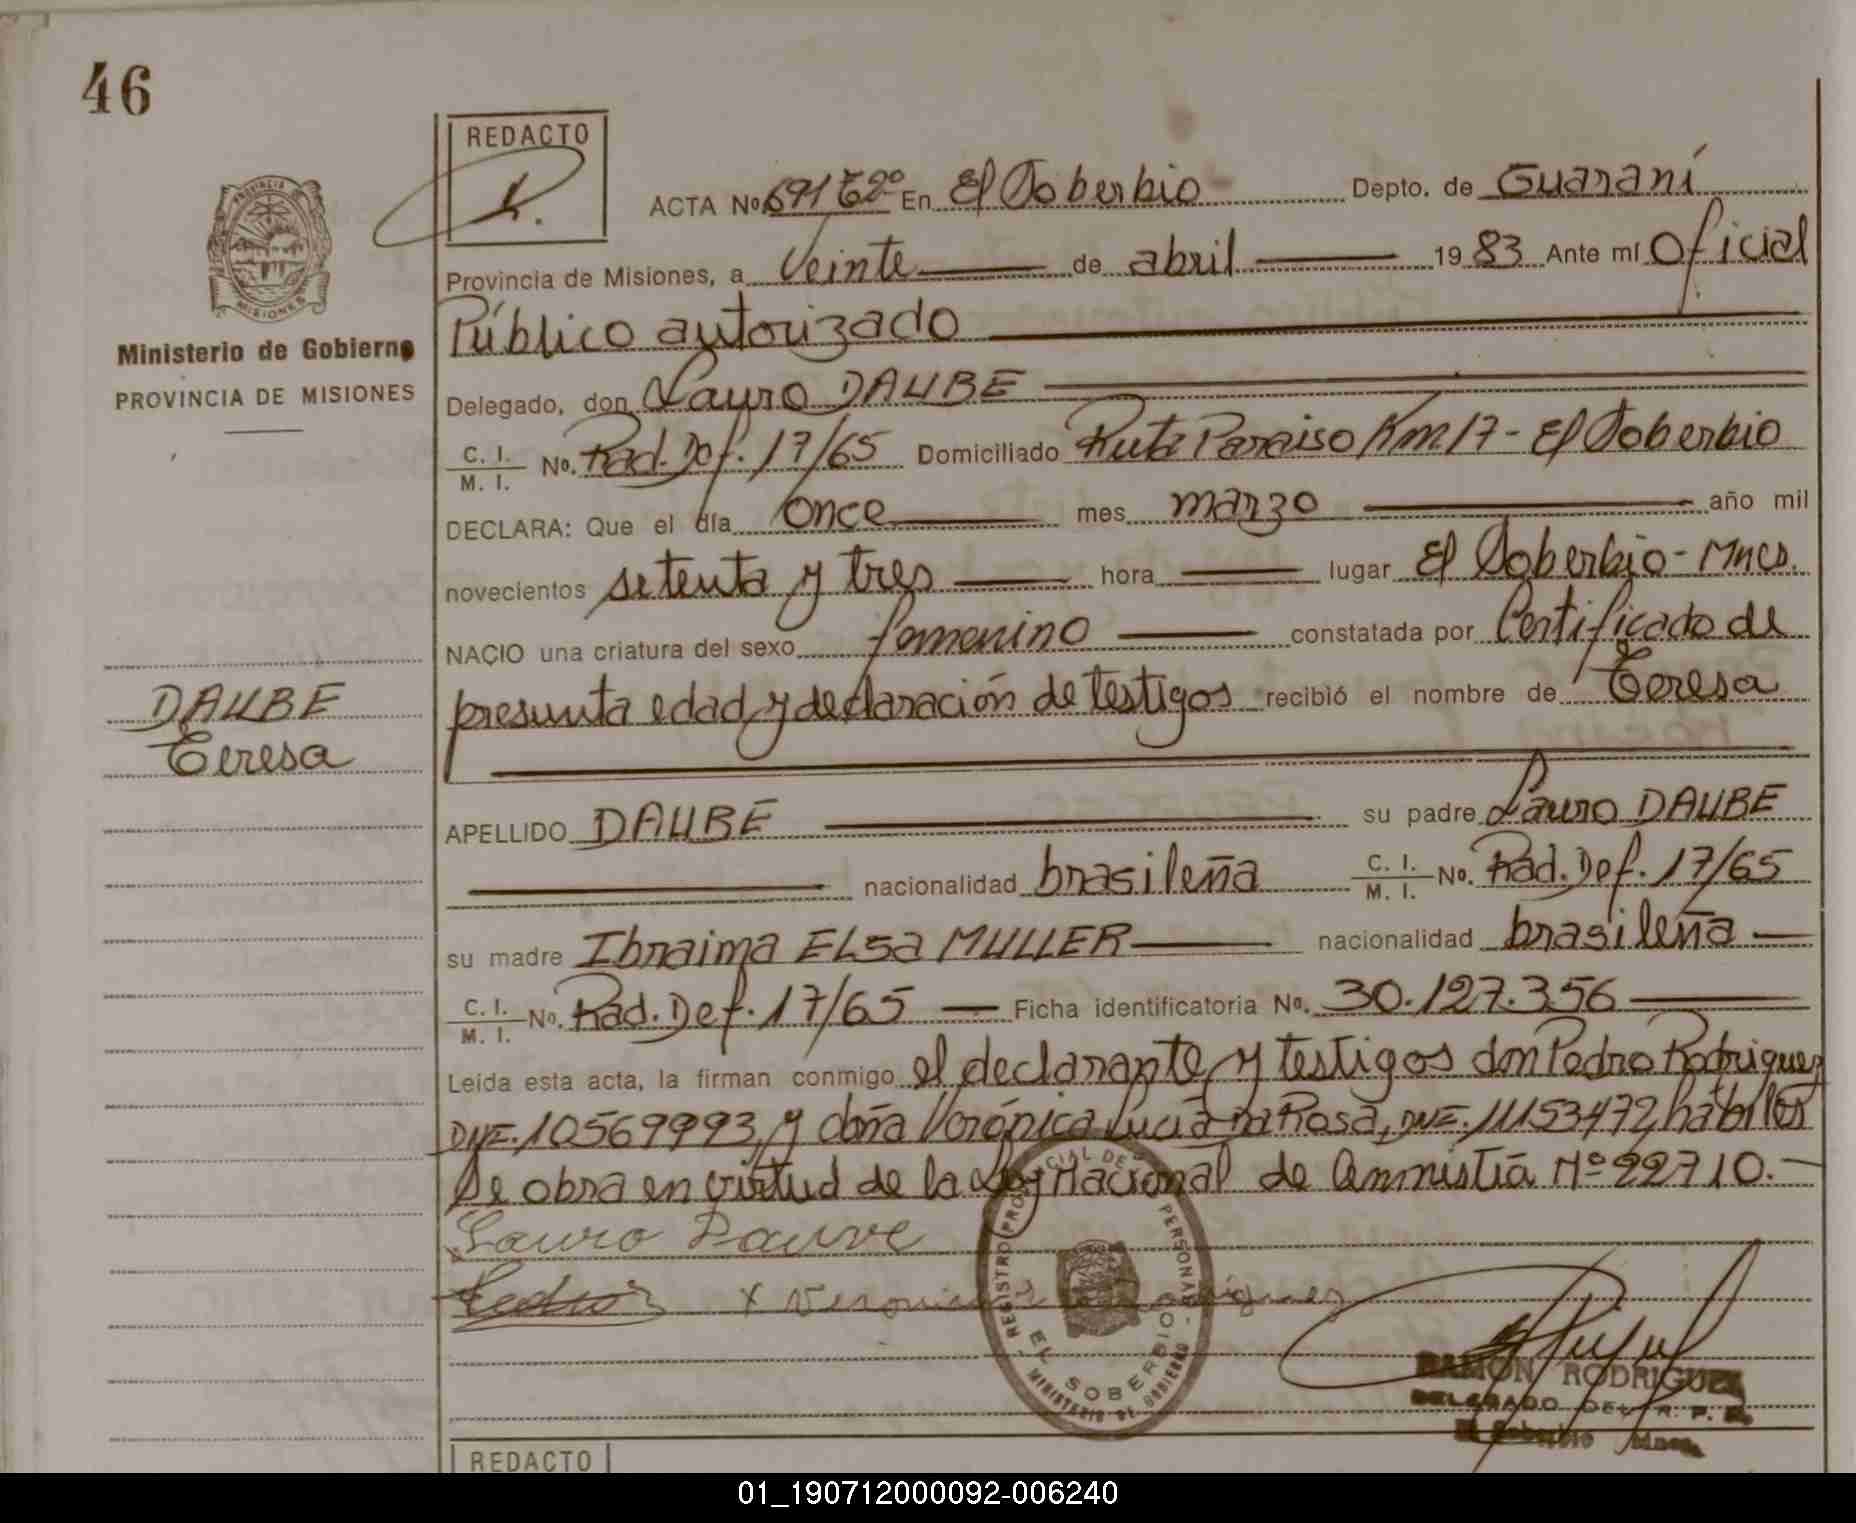 46
REDACTO
ACTA No. 691 T2º En El Soberbio Depto. de Guaraní
PROVINCIA
MISIONES
Ministerio de Gobierno
PROVINCIA DE MISIONES
Provincia de Misiones, a Veinte de abril 1983 Ante mí Oficial
Público autorizado
Delegado, don Lauro DAUBE
C. I. M. I. No. Rad. Def. 17/65 Domiciliado Ruta Paraiso Km 17 - El Soberbio
DECLARA: Que el día once mes marzo año mil
novecientos setenta y tres hora lugar El Soberbio - Mnes.
NACIO una criatura del sexo femenino constatada por Certificado de
presunta edad y declaración de testigos recibió el nombre de Teresa
DAUBE
Teresa
APELLIDO DAUBE su padre Lauro DAUBE
nacionalidad brasileña C. I. M. I. No. Rad. Def. 17/65
su madre Ibraima ELSa MULLER nacionalidad brasileña
C. I. M. I. No. Rad. Def. 17/65 Ficha identificatoria No. 30.127.356
Leída esta acta, la firman conmigo el declarante y testigos don Pedro Rodriguez
DNI. 10569993 y doña Verónica Lucía da Rosa, DNI. 11153472, hábiles
Se obra en virtud de la Ley Nacional de Amnistía Nº 22710.-
Lauro Dauve
Pedro x Veronica
REGISTRO PROVINCIAL DE PERSONAS
EL SOBERBIO
MINISTERIO DE GOBIERNO
RAMON RODRIGUEZ
DELEGADO DEL R. P. P.
El Soberbio Mnes.
REDACTO
01_190712000092-006240